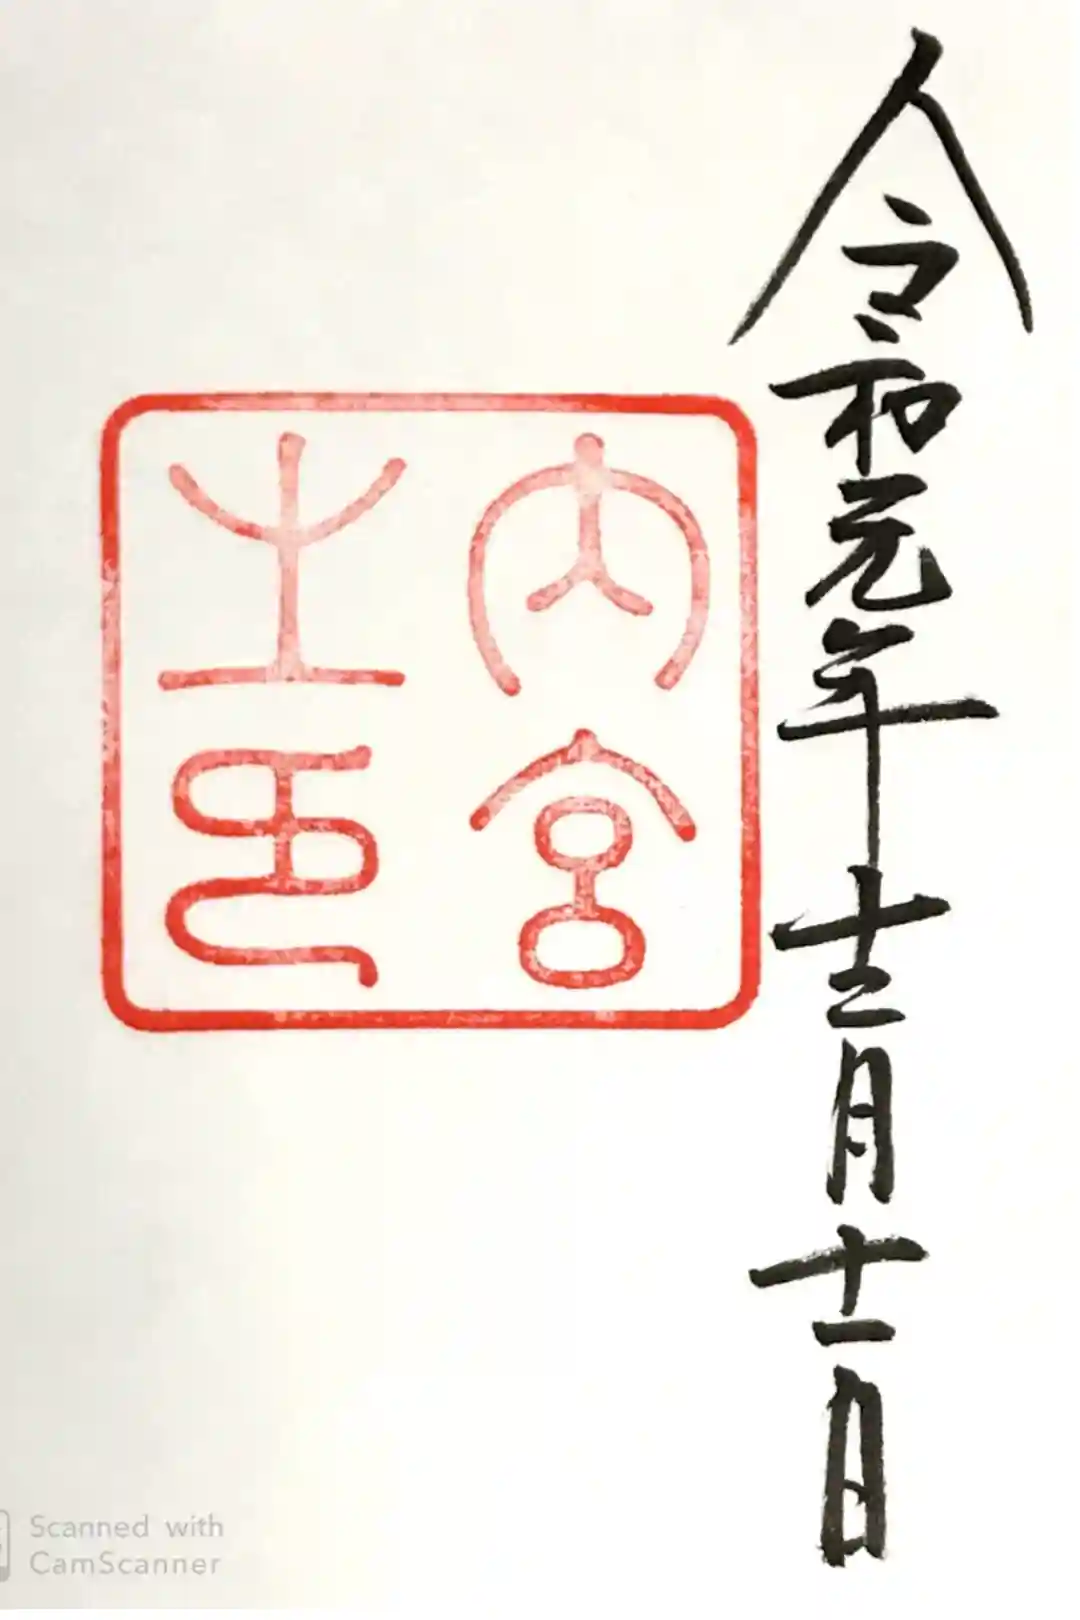 令和元年十二月十一日
内宮
之印
Scanned with
CamScanner